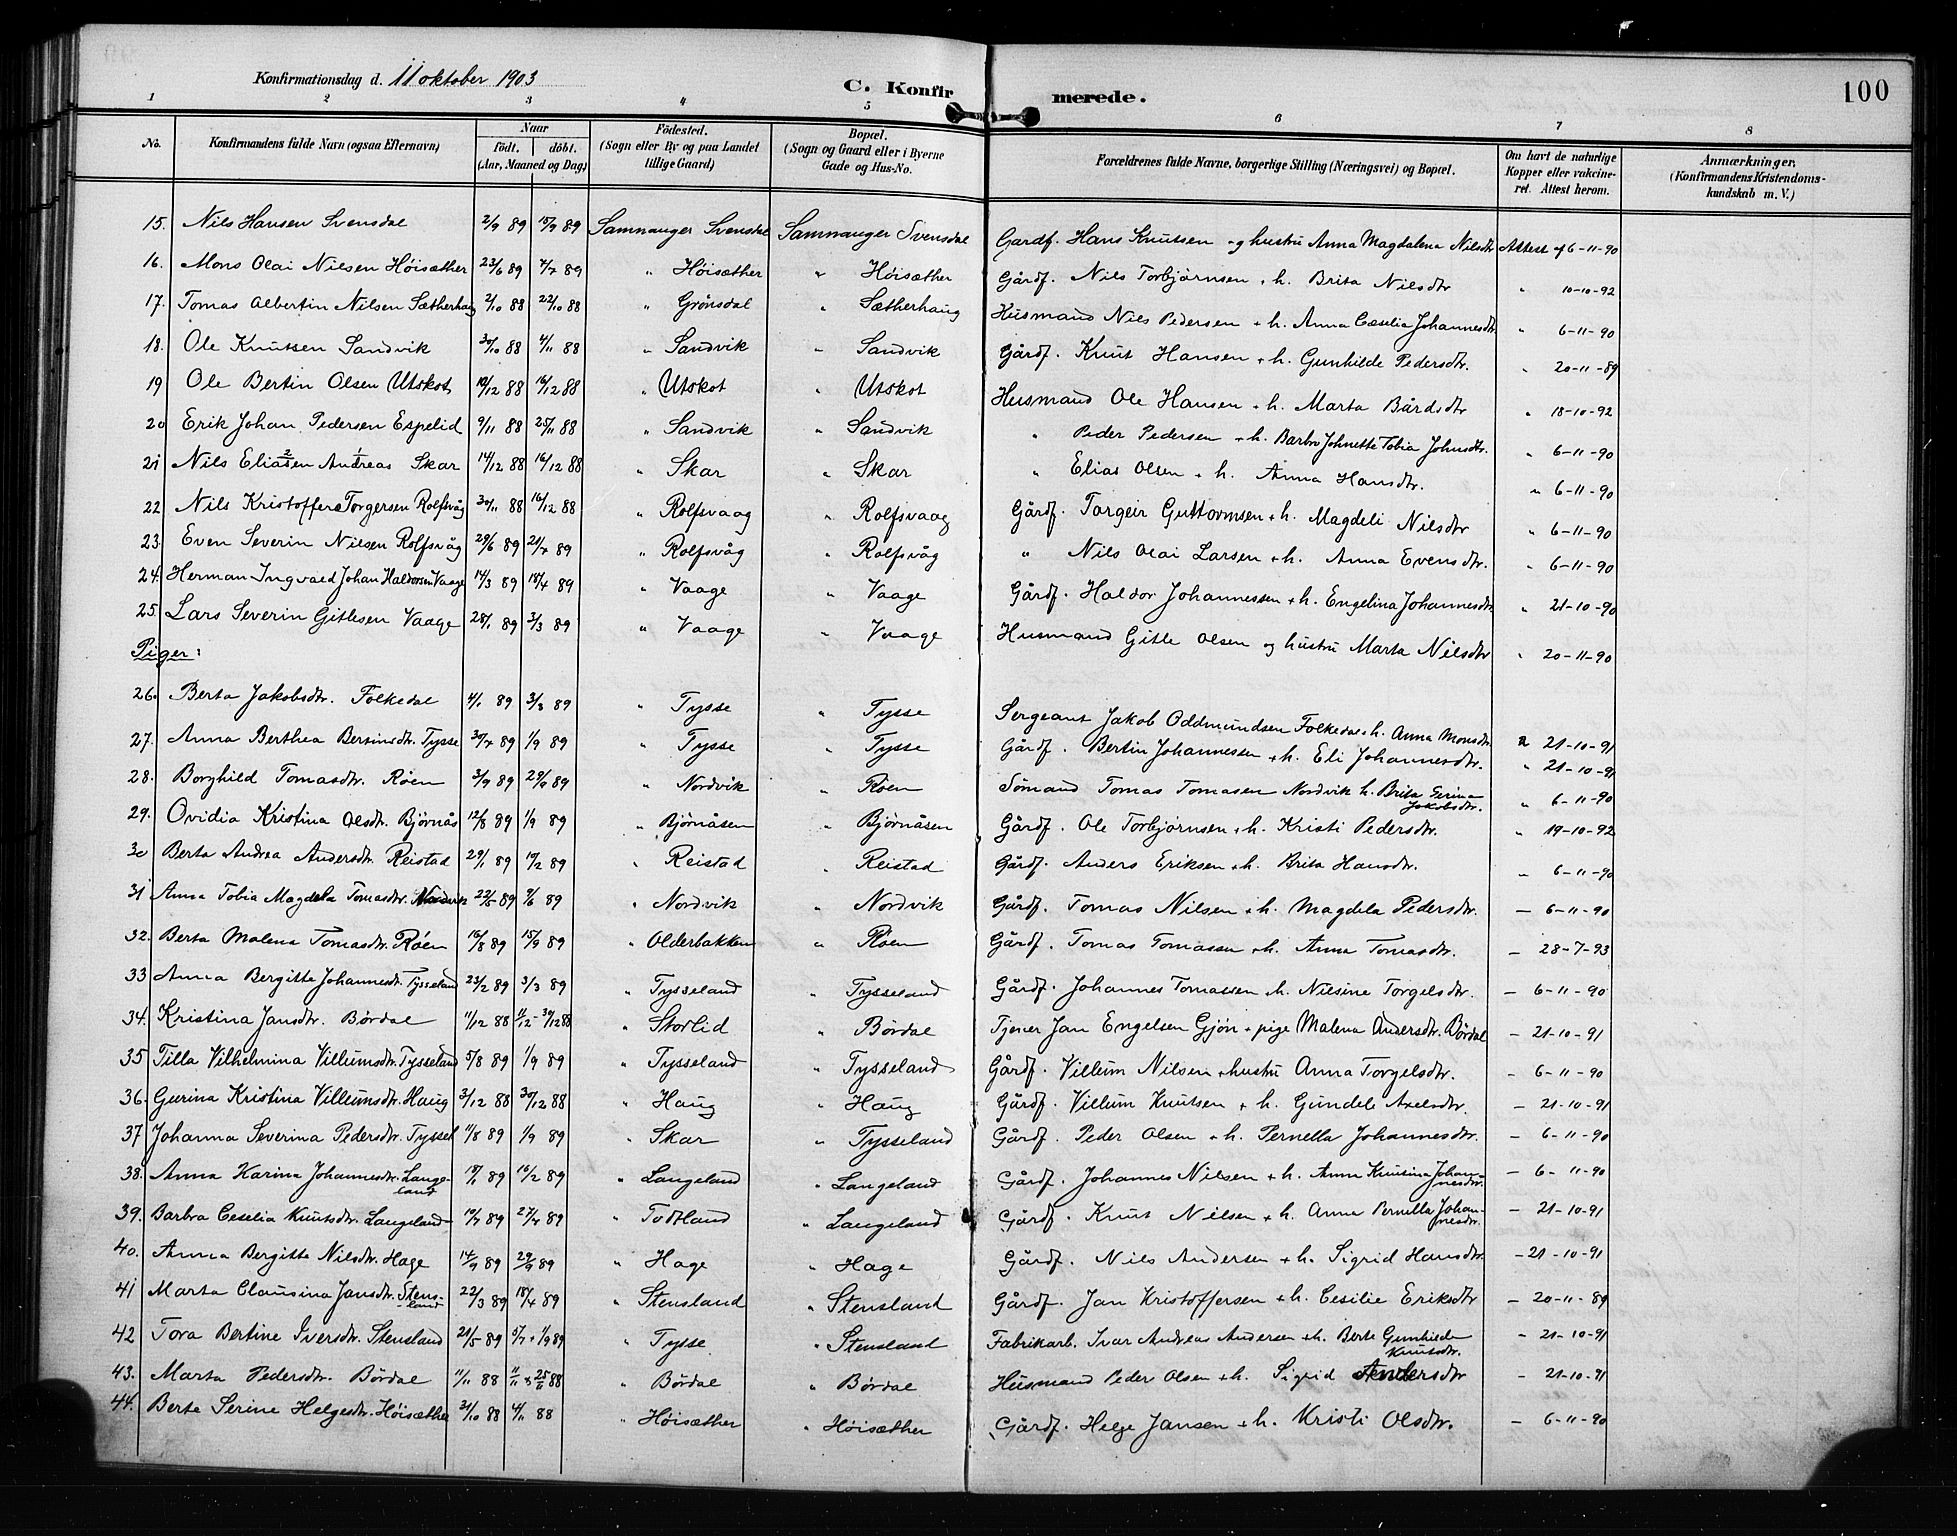 Konfirmationsdag d. 11 oktober 1903
C. Konfirmerede.
100
1 2 3 4 5 6 7 8
No. Konfirmandens fulde Navn (ogsaa Efternavn) Naar født. døbt. (Aar, Maaned og Dag) Fødested. (Sogn eller By og paa Landet tillige Gaard) Bopæl. (Sogn og Gaard eller i Byerne Gade og Hus-No. Forældrenes fulde Navne, borgerlige Stilling (Næringsvei) og Bopæl. Om havt de naturlige Kopper eller vakcineret. Attest herom. Anmærkninger. (Konfirmandens Kristendomskundskab m. V.)
15. Nils Hansen Svensdal 2/9 89 15/9 89 Samnanger Svensdal Samnanger Svensdal Gardf. Hans Knutsen og hustru Anna Magdalena Nilsdtr Attest af 6-11-90
16. Mons Olai Nilsen Høisæther 23/6 89 7/7 89 " Høisæther " Høisæther Gårdf. Nils Torbjørnsen + h. Brita Nilsdtr " 10-10-92
17. Tomas Albertin Nilsen Sætherhaug 2/10 88 22/10 88 " Grønsdal " Sætherhaug Husmand Nils Pedersen + h. Anna Cæselia Johannesdtr. " 6-11-90
18. Ole Knutsen Sandvik 30/10 88 4/11 88 " Sandvik " Sandvik Gårdf. Knut Hansen + h. Gunhilde Pedersdtr. " 20-11-89
19 Ole Bertin Olsen Utskot 10/12 88 16/12 88 " Utskot " Utskot Husmand Ole Hansen + h. Marta Bårdsdtr " 18-10-92
20 Erik Johan Pedersen Espelid 9/11 88 25/11 88 " Sandvik " Sandvik " Peder Pedersen + h. Barbro Johnette Tobia Johnsdtr. " 6-11-90
21 Nils Eliasen 2 Andreas 1 Skar 14/12 88 16/12 88 " Skar " Skar " Elias Olsen + h. Anna Hansdtr. " 6-11-90
22 Nils Kristoffer Torgersen Rolfsvåg 30/11 88 16/12 88 " Rolfsvaag " Rolfsvaag Gårdf. Torgeir Guttormsen + h. Magdeli Nilsdtr " 6-11-90
23. Even Severin Nilsen Rolfsvåg 29/6 89 21/7 89 " Rolfsvåg " Rolfsvåg " Nils Olai Larsen + h. Anna Evensdtr. " 6-11-90
24. Herman Ingvald Johan Haldorsen Vaage 14/3 89 18/4 89 " Vaage " Vaage Gårdf. Haldor Johannessen + h. Engelina Johannesdtr " 21-10-90
25. Lars Severin Gitlesen Vaage 28/1 89 3/3 89 " Vaage " Vaage Husmand Gitle Olsen og hustru Marta Nilsdtr " 20-11-90
Piger:
26. Berta Jakobsdtr. Folkedal 4/1 89 3/3 89 " Tysse " Tysse Sergeant Jakob Oddmundsen Folkedal + h. Anna Monsdtr. " 21-10-91
27. Anna Berthea Bertinsdtr. Tysse 30/7 89 1/9 89 " Tysse " Tysse Gårdf. Bertin Johannessen + h. Eli Johannesdtr. " 21-10-91
28. Borghild Tomasdtr. Røen 3/9 89 29/9 89 " Nordvik " Røen Sømand Tomas Tomasen Nordvik h. Brita Serina Jakobsdtr. " 6-11-90
29. Ovidia Kristina Olsdtr. Bjørnås 12/8 89 1/9 89 " Bjørnåsen " Bjørnåsen Gårdf. Ole Torbjørnsen + h. Kristi Pedersdtr. " 19-10-92
30 Berta Andrea Andersdtr. Reistad 29/1 89 10/2 89 " Reistad " Reistad Gårdf. Anders Eriksen + h. Brita Hansdtr. " 6-11-90
31 Anna Tobia Magdela Tomasdtr. Nordvik 22/5 89 9/6 89 " Nordvik " Nordvik Gårdf. Tomas Nilsen + h. Magdela Pedersdtr. — 6-11-90
32. Berta Malena Tomasdtr. Røen 16/8 89 15/9 89 " Olderbakken " Røen Gårdf. Tomas Tomassen + h. Anna Tomasdtr. — 28-7-93
33 Anna Bergitta Johannesdt. Tysseland 23/2 89 3/3 89 " Tysseland " Tysseland Gårdf. Johannes Tomassen + h. Nilsine Torgelsdtr. — 6-11-90
34. Kristina Jansdtr. Børdal 11/12 88 11/12 - 30/12 88 " Storlid " Børdal Tjener Jan Engelsen Gjøn + pige Malena Andersdtr. Børdal — 21-10-91
35 Tilla Vilhelmina Villumsdtr. Tysseland 5/8 89 1/9 89 " Tysseland " Tysseland Gårdf. Villum Nilsen + hustru Anna Torgelsdtr. — 6-11-90
36. Gurina Kristina Villumsdtr. Haug 3/12 88 30/12 88 " Haug " Haug Gårdf. Villum Knutsen + h. Gundele Axelsdtr. — 21-10-91
37 Johanna Severina Pedersdtr. Tyssel 11/8 89 1/9 89 " Skar " Tysseland Gårdf. Peder Olsen + h. Pernella Johannesdtr. — 6-11-90
38. Anna Karina Johannesdtr. Langeland 18/1 89 16/2 89 " Langeland " Langeland Gårdf. Johannes Nilsen + h. Anna Knutina Johannesdtr. — 6-11-90
39. Barbra Ceselia Knutsdtr. Langeland 10/4 89 27/4 89 " Todtland " Langeland Gårdf. Knut Nilsen + h. Anna Pernilla Johannesdtr. — 21-10-91
40. Anna Bergitta Nilsdtr. Hage 14/9 89 29/9 89 " Hage " Hage Gårdf. Nils Andersen + h. Sigrid Hansdtr. — 21-10-91
41 Marta Clausina Jansdtr. Stensland 22/3 89 18/4 89 " Stensland " Stensland Gårdf. Jan Kristoffersen + h. Cesilie Eriksdtr — 20-11-89
42 Tora Bertine Iversdtr. Stensland 21/5 89 5/7 + 1/9 89 " Tysse " Stensland Fabrikarb. Ivar Andreas Andersen + h. Berte Gunhilda Knutsdtr. " 21-10-91
43. Marta Pedersdtr. Børdal 11/11 88 11/11 & 25/11 88 " Børdal " Børdal Husmand Peder Olsen + h. Sigrid Andersdtr - 21-10-91
44. Berte Serine Helgesdtr. Høisæther 31/10 88 4/11 88 " Høisæther " Høisæther Gårdf. Helge Jansen + h. Kristi Olsdtr. — 6-11-90